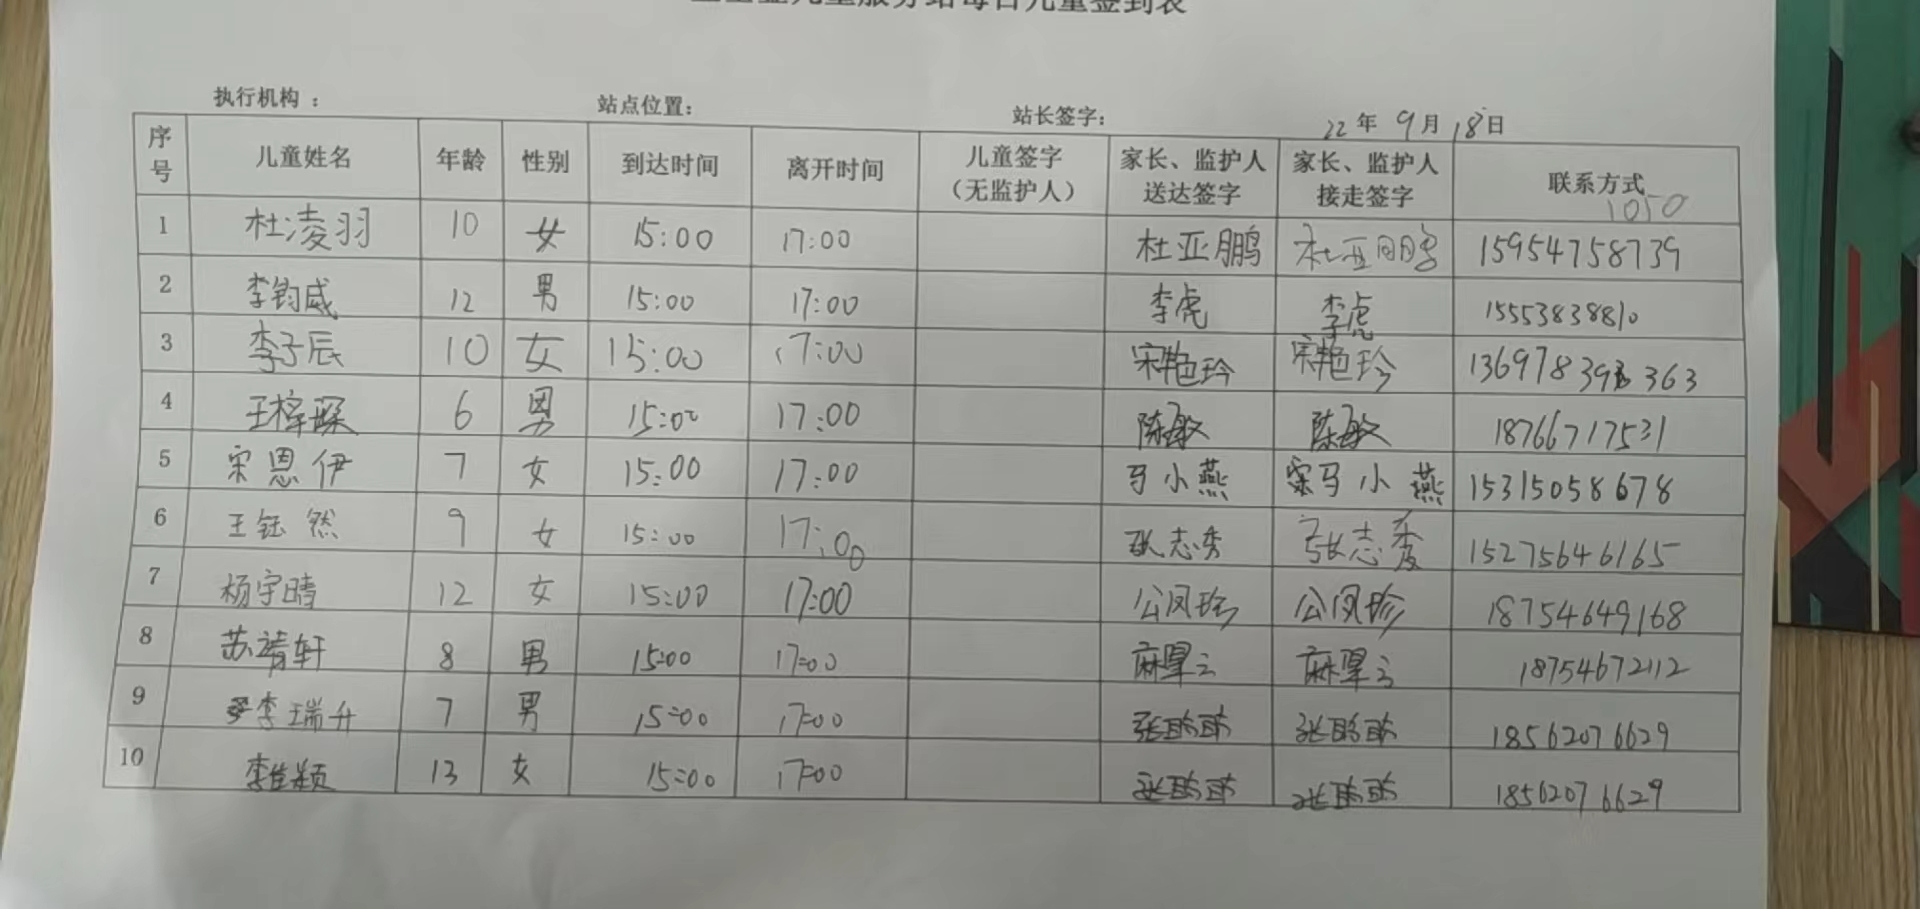 儿童服务站每日儿童签到表
执行机构： 站点位置： 站长签字： 22年9月18日
序号 儿童姓名 年龄 性别 到达时间 离开时间 儿童签字（无监护人） 家长、监护人送达签字 家长、监护人接走签字 联系方式 1050
1 杜凌羽 10 女 15:00 17:00 杜亚鹏 杜亚鹏 15954758739
2 李钧威 12 男 15:00 17:00 李虎 李虎 15553838810
3 李子辰 10 女 15:00 17:00 宋艳玲 宋艳玲
4 王梓琛 6 男 15:00 17:00 陈敏 陈敏 18766717531
5 宋恩伊 7 女 15:00 17:00 马小燕 马小燕 15315058678
6 王钰然 9 女 15:00 17:00 张志秀 张志秀 15275646165
7 杨宇晴 12 女 15:00 17:00 公凤珍 公凤珍 18754649168
8 苏靖轩 8 男 15:00 17:00 麻翠云 麻翠云 18754672112
9 李瑞升 7 男 15:00 17:00 18562076629
10 李佳颖 13 女 15:00 17:00 18562076629